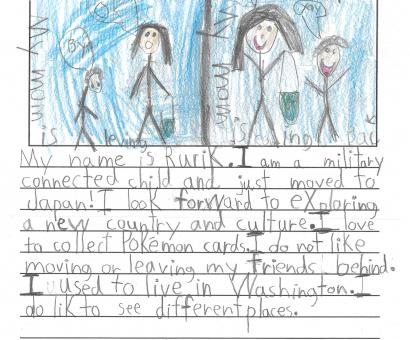 Bye
My mom
is leving
My mom
is coming Bac
My name is Rurik. I am a military
connected child and just moved to
Japan! I look forward to exploring
a new country and culture. I love
to collect Pokemon cards. I do not like
moving or leaving my friends behind.
I used to live in Washington. I
do lik to see different places.